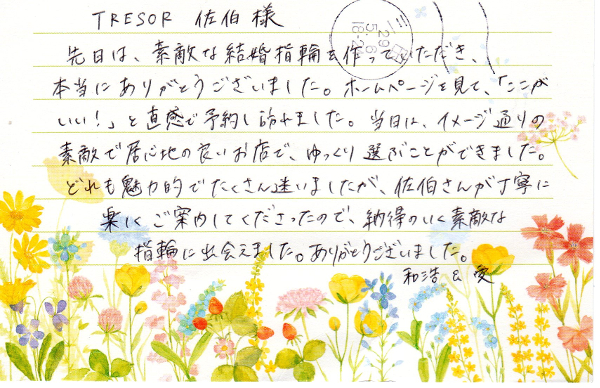 TRESOR 佐伯様
先日は、素敵な結婚指輪を作っていただき、
本当にありがとうございました。ホームページを見て、「ここが
いい!」と直感で予約し訪れました。当日は、イメージ通りの
素敵で居心地の良いお店で、ゆっくり選ぶことができました。
どれも魅力的でたくさん迷いましたが、佐伯さんが丁寧に
楽しくご案内してくださったので、納得のいく素敵な
指輪に出会えました。ありがとうございました。
和浩 & 愛
29
5.6